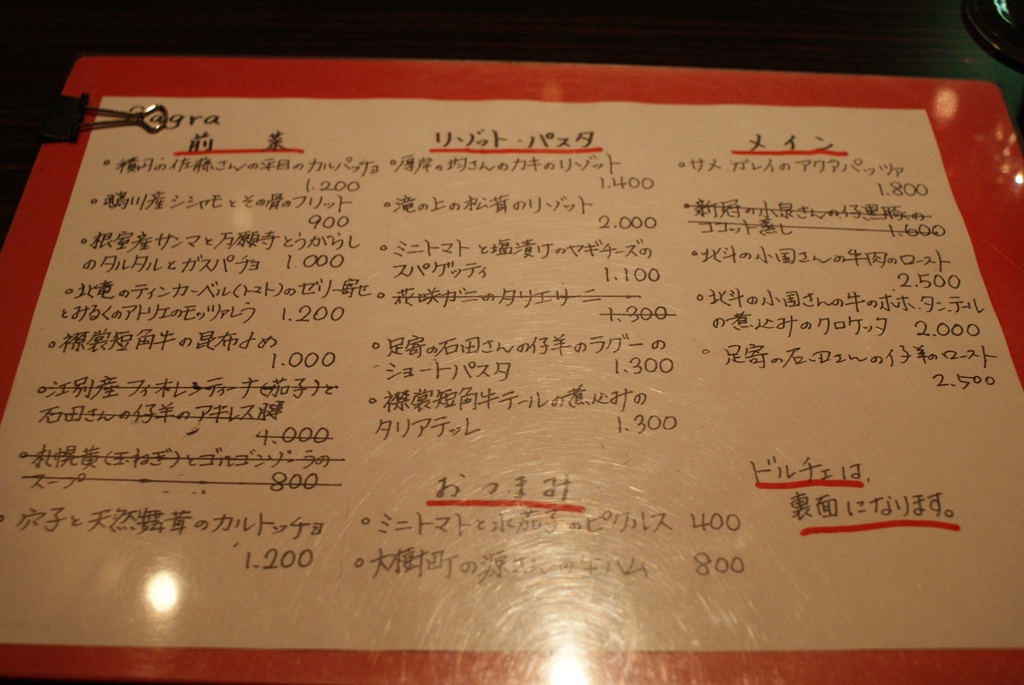 agra
前菜
・積丹の佐藤さんの平目のカルパッチョ
1.200
・鵡川産シシャモとその骨のフリット
900
・根室産サンマと万願寺とうがらし
のタルタルとガスパチョ 1.000
・北竜のティンカーベル(トマト)のゼリー寄せ
とみるくのアトリエのモッツァレラ 1.200
・襟裳短角牛の昆布〆め
1.000
・江別産フィオレンティーナ(茄子)と
石田さんの仔羊のアキレス腱
1.000
・札幌黄(玉ねぎ)とゴルゴンゾーラの
スープ 800
・穴子と天然舞茸のカルトッチョ
1.200
リゾット・パスタ
・厚岸の均さんのカキのリゾット
1.400
・滝の上の松茸のリゾット
2.000
・ミニトマトと塩漬けのヤギチーズの
スパゲッティ 1.100
・花咲ガニのタリエリーニ
1.300
・足寄の石田さんの仔羊のラグーの
ショートパスタ 1.300
・襟裳短角牛テールの煮込みの
タリアテッレ 1.300
おつまみ
・ミニトマトと水茄子のピクルス 400
・大樹町の源さんの生ハム 800
メイン
・サメガレイのアクアパッツァ
1.800
・新冠の小泉さんの仔黒豚の
ココット蒸し 1.600
・北斗の小国さんの牛肉のロースト
2.500
・北斗の小国さんの牛のホホ、タン、テール
の煮込みのクロケッタ 2.000
・足寄の石田さんの仔羊のロースト
2.500
ドルチェは、
裏面になります。